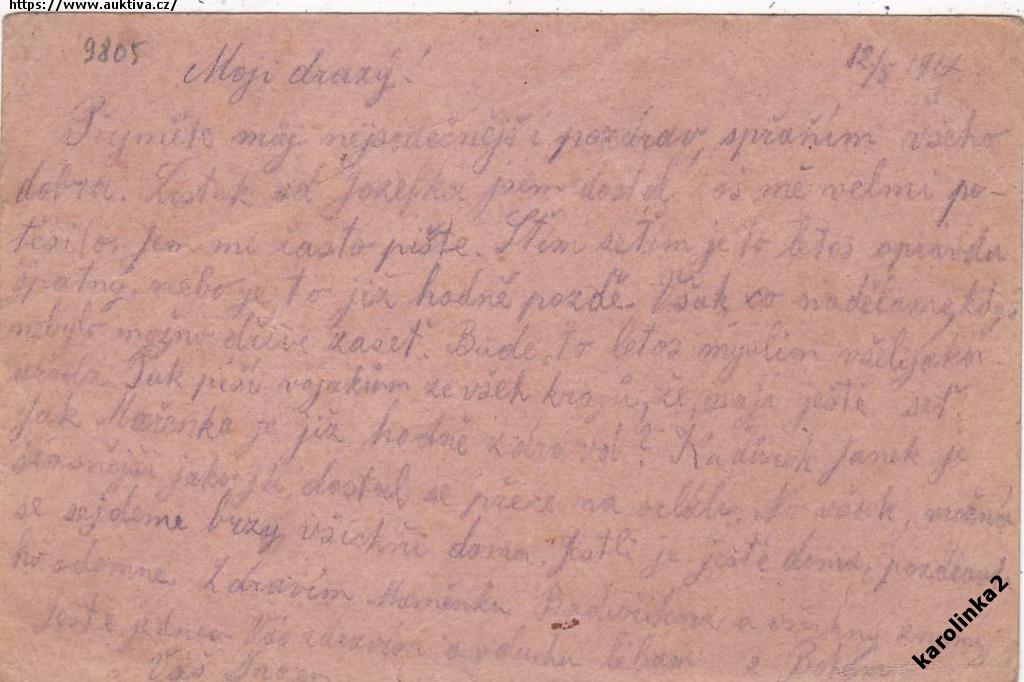 https://www.auktiva.cz/
9805
12/5 191
Moji drazý!
Přijměte můj nejsrdečnější pozdrav, spřáním všeho
dobra. Lístek od Jozefka jsem dostal, což mě velmi po-
těšilo, jen mi často pište. S tím setím je to letos opravdu
špatný, nebo je to již hodně pozdě. Však co naděláme, když
nebylo možno dříve zaseť. Bude to letos myslím všelijaká
úroda. Tak píší vojakům ze všek krajů, že mají ještě seť.
Jak Mařenka je již hodně zdrová? Kadlíček Janek je
šťasnější jako já, dostal se přece na urláb. No však, možná
se sejdeme brzy všichni doma. Jestli je ještě doma, pozdravte
ho odemne. Zdravím Maměnku, a všechny
Ještě jednou Vás zdravím a v duchu líbám z
Váš
karolinka2